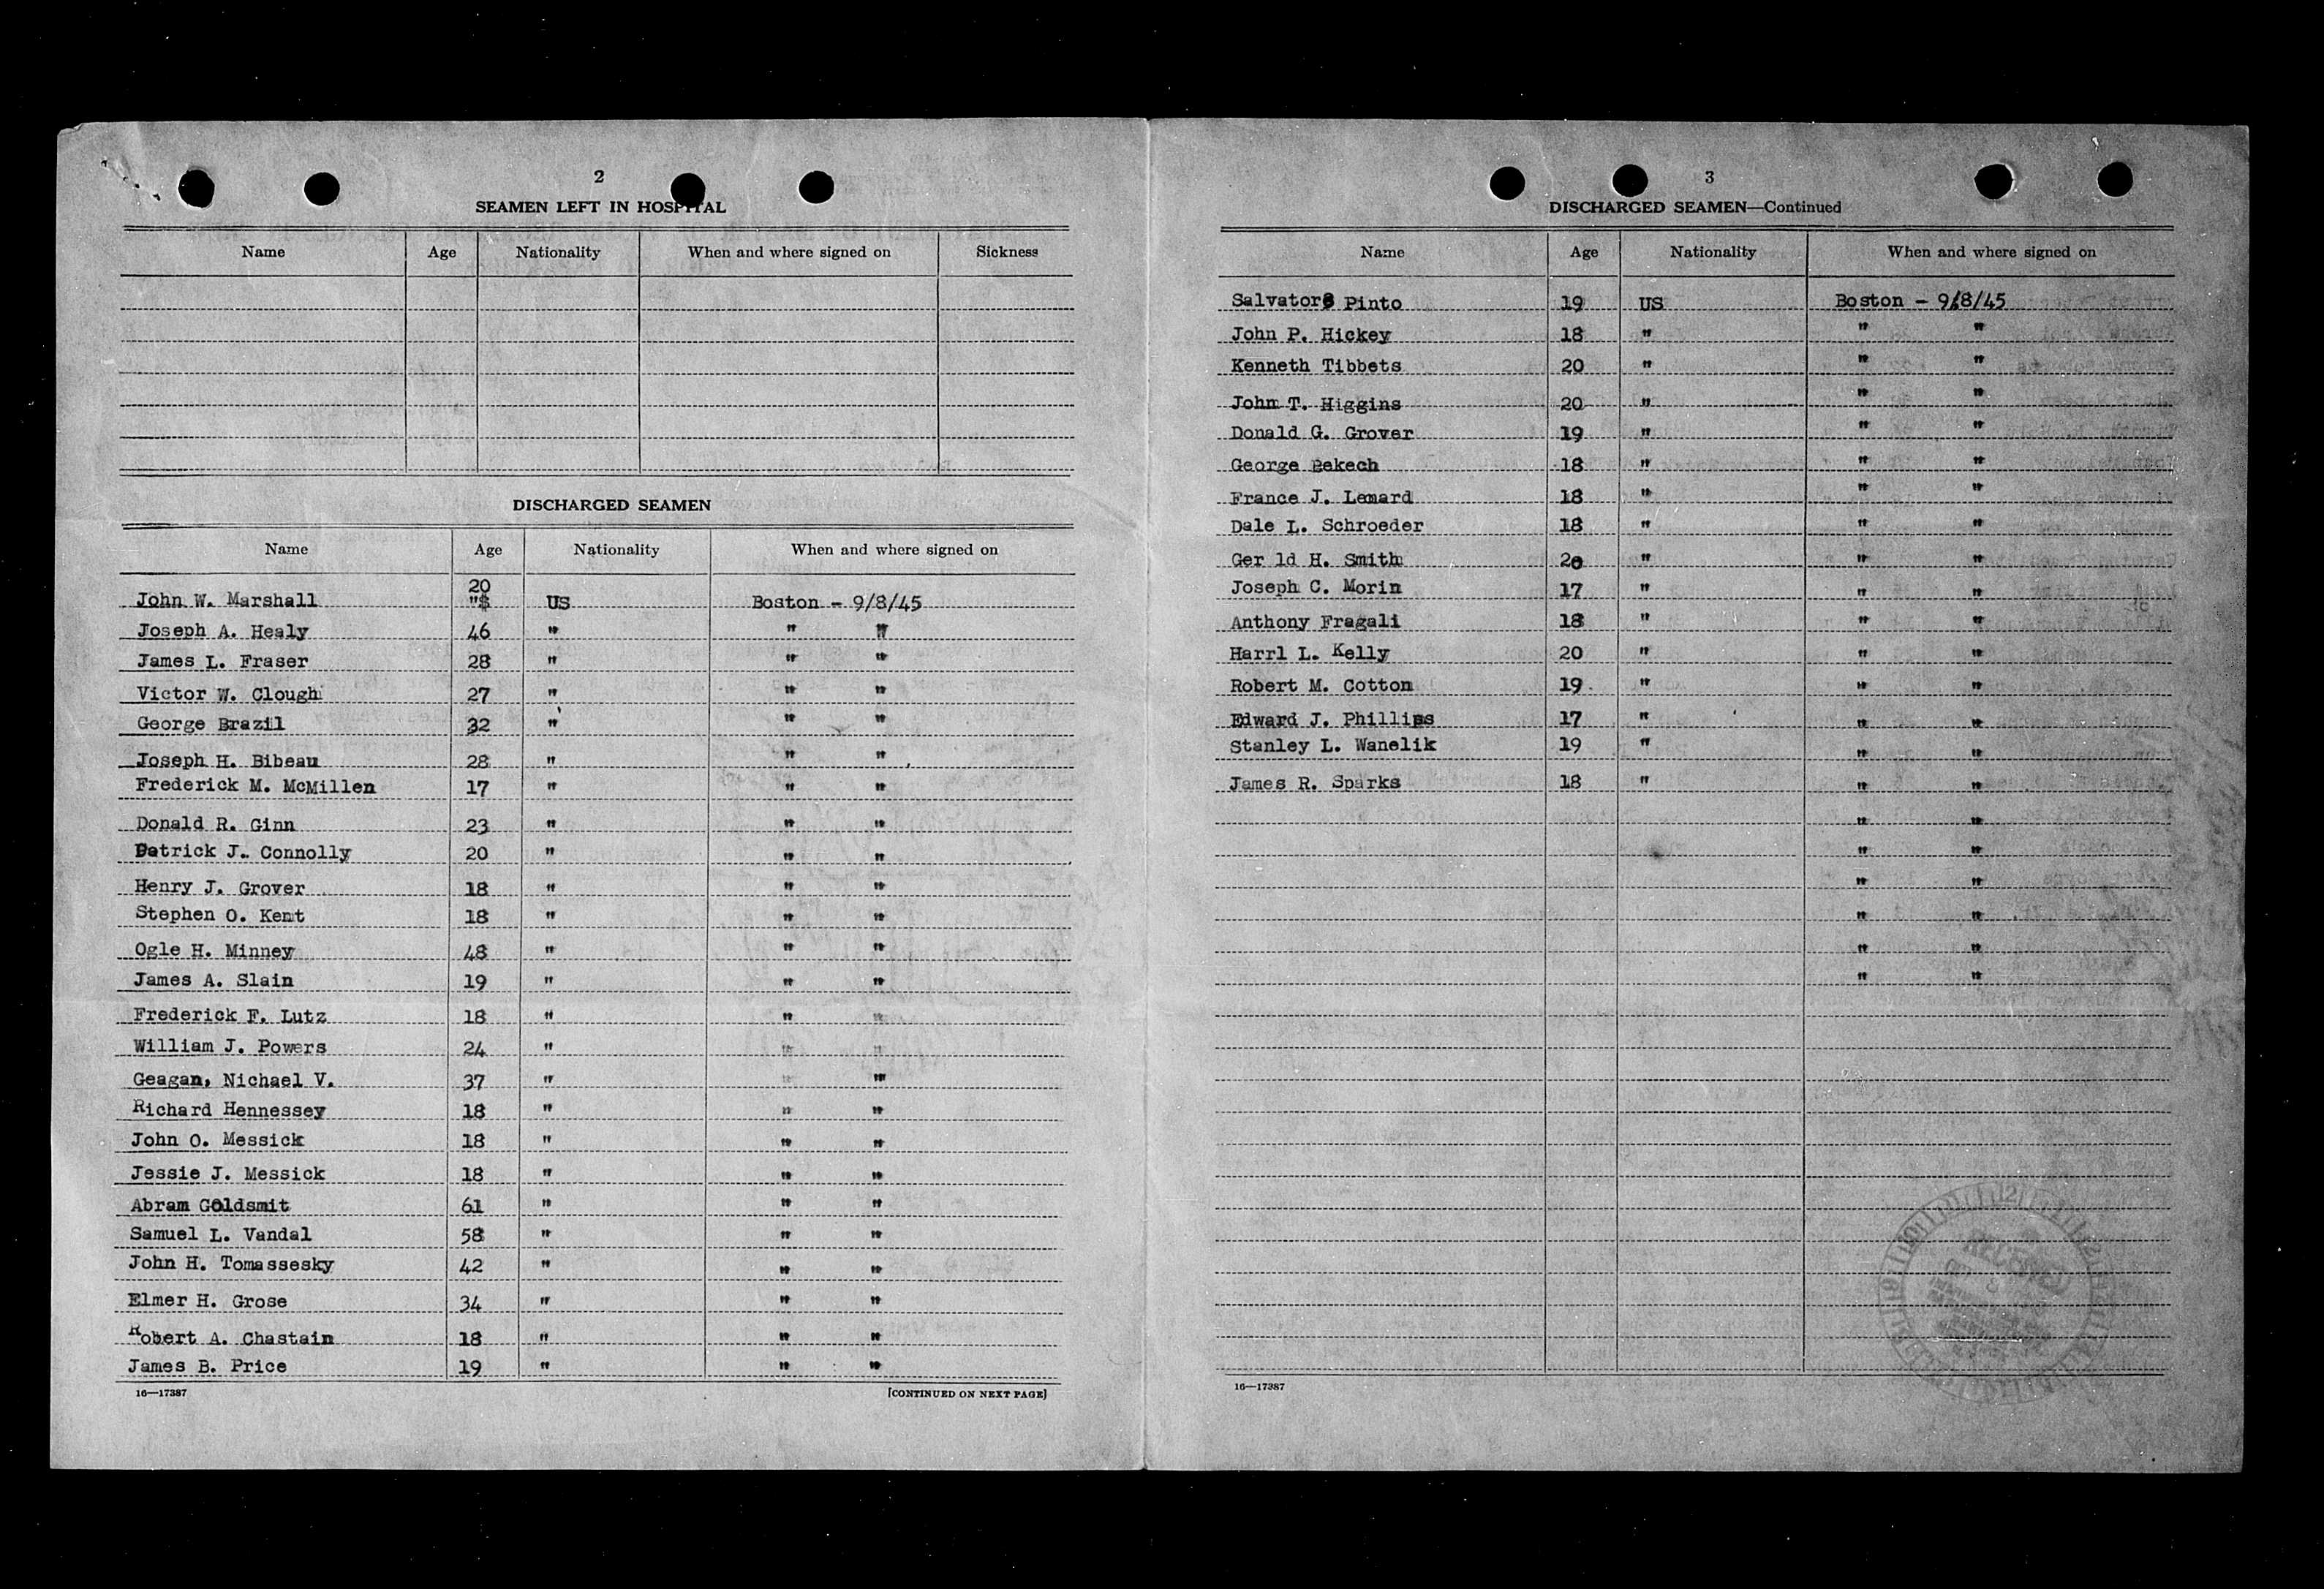 2
SEAMEN LEFT IN HOSPITAL
Name Age Nationality When and where signed on Sickness
DISCHARGED SEAMEN
Name Age Nationality When and where signed on
20
John W. Marshall "$ US Boston - 9/8/45
Joseph A. Healy 46 " " "
James L. Fraser 28 " " "
Victor W. Clough 27 " " "
George Brazil 32 " " "
Joseph H. Bibeau 28 " " "
Frederick M. McMillen 17 " " "
Donald R. Ginn 23 " " "
Patrick J. Connolly 20 " " "
Henry J. Grover 18 " " "
Stephen O. Kent 18 " " "
Ogle H. Minney 48 " " "
James A. Slain 19 " " "
Frederick F. Lutz 18 " " "
William J. Powers 24 " " "
Geagan, Nichael V. 37 " " "
Richard Hennessey 18 " " "
John O. Messick 18 " " "
Jessie J. Messick 18 " " "
Abram Goldsmit 61 " " "
Samuel L. Vandal 58 " " "
John H. Tomassesky 42 " " "
Elmer H. Grose 34 " " "
Robert A. Chastain 18 " " "
James B. Price 19 " " "
16—17387 [CONTINUED ON NEXT PAGE]
3
DISCHARGED SEAMEN—Continued
Name Age Nationality When and where signed on
Salvatore Pinto 19 US Boston - 9/8/45
John P. Hickey 18 " " "
Kenneth Tibbets 20 " " "
John T. Higgins 20 " " "
Donald G. Grover 19 " " "
George 18 " " "
France J. Lemard 18 " " "
Dale L. Schroeder 18 " " "
Ger ld H. Smith 20 " " "
Joseph C. Morin 17 " " "
Anthony Fragali 18 " " "
Harrl L. Kelly 20 " " "
Robert M. Cotton 19 " " "
Edward J. Phillips 17 " " "
Stanley L. Wanelik 19 " " "
James R. Sparks 18 " " "
" "
" "
" "
" "
" "
" "
RECEIVED
16—17387